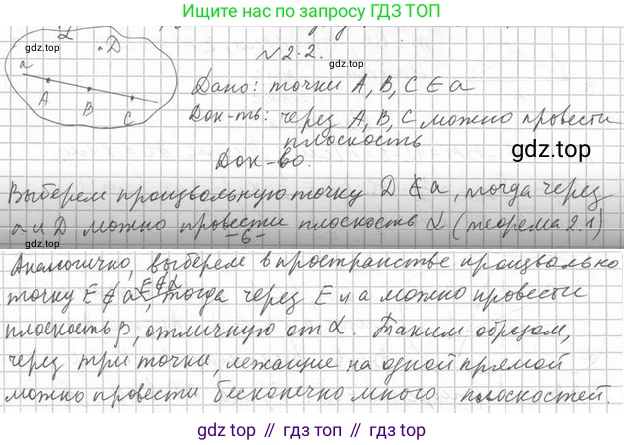 Ищите нас по запросу ГДЗ ТОП
α
gdz.top
D
a
A
B
C
№2.2.
Дано: точки A, B, C ∈ a
Док-ть: через A, B, C можно провести
плоскость
Док-во.
gdz.top
Выберем произвольную точку D ∉ a, тогда через
a и D можно провести плоскость α (теорема 2.1)
-6-
Аналогично, выберем в пространстве произвольно
точку E ∉ a, E ∉ α, тогда через E и a можно провести
плоскость β, отличную от α. Таким образом,
через три точки, лежащие на одной прямой
можно провести бесконечно много плоскостей.
gdz.top // гдз.топ // gdz.top